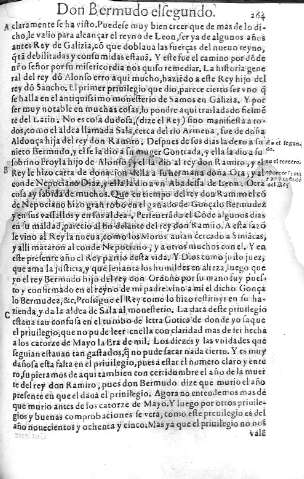 Don Bermudo el segundo. 264
A claramente se ha visto. Puedese muy bien creer que de mas de lo di-
cho, le valio para alcançar el reyno de Leon, ser ya de algunos años
antes Rey de Galizia, cō que doblaua las fuerças del nueuo reyno,
q̃ tā debilitadas y consumidas estauā. Y este fue el camino por dōde
nr̃o señor por su misericordia nos quiso remediar. La historia gene
ral del rey dō Alonso erro aqui mucho, haziēdo a este Rey hijo del
rey dō Sancho. El primer priuilegio que dio, parece cierto ser vno q̃
se halla en el antiquissimo monesterio de Samos en Galizia. Y por
ser muy notable en muchas cosas, lo pondre aqui trasladado fielmē
te del Latin. No es cosa dudosa, (dize el Rey) sino manifiesta a to-
dos, como el aldea llamada Sala, cerca del rio Armena, fue de doña
Aldonça hija del rey don Ramiro. Despues de sus dias la dero a su
nieto Bermudo, y el se la dio a su muger Gontoda, y ella la dio a su
sobrino Froyla hijo de Alonso, y el la dio al rey don Ramiro, y el
B Rey le hizo carta de donacion della a su hermana doña Oña, y al
conde Nepociano Diaz, y ella la dio a vn Abadessa de Leon. Otra
cosa ay sabida de muchos. Que en tiempo del rey don Ramiro el cō
de Nepociano hizo gran robo en el ganado de Gonçalo Bermudez
y en sus vassallos y en sus aldeas. Perseuerādo el Cōde algunos dias
en su maldad, parecio al fin delante del rey don Ramiro. A esta sazō
le vino al Rey la nueua, como los Moros auian cercado a Simācas,
y alli mataron al conde Nepociano, y a otros muchos con el. Y en
este presente año el Rey partio desta vida. Y Dios como justo juez,
que ama la justicia, y que leuanta los humildes en alteza, puso
en el rey Bermudo hijo del rey don Ordoño por su mano fuy pues-
to y confirmado en el reyno de mi padre vino a mi el dicho Gonça
lo Bermudez, &c. Prosigue el Rey como lo hizo restituyr en su ha-
C zienda, y da la aldea de Sala al monesterio. La data deste priuilegio
estaua tan confusa en el tumbo de letra Gotica de dōde yo saque
el priuilegio, que no pude leer en ella con claridad mas de ser hecha
a los catorze de Mayo la Era de mil. Los diezes y las vnidades que
seguian estauan tan gastados, q̃ no pude sacar nada cierto. Y es muy
dañosa esta falta en el priuilegio, pues a estar el numero claro y ente
ro, supieramos de aqui tambien con certidumbre el año de la muer
te del rey don Ramiro, pues don Bermudo dize que murio el año
presente en que el daua el priuilegio. Agora no entendemos mas de
que murio antes de los catorze de Mayo. Y luego por otros priuile-
gios y buenas comprouaciones se vera, como este priuilegio es del
año nouecientos y ochenta y cinco. Mas ya que el priuilegio no nos
vale